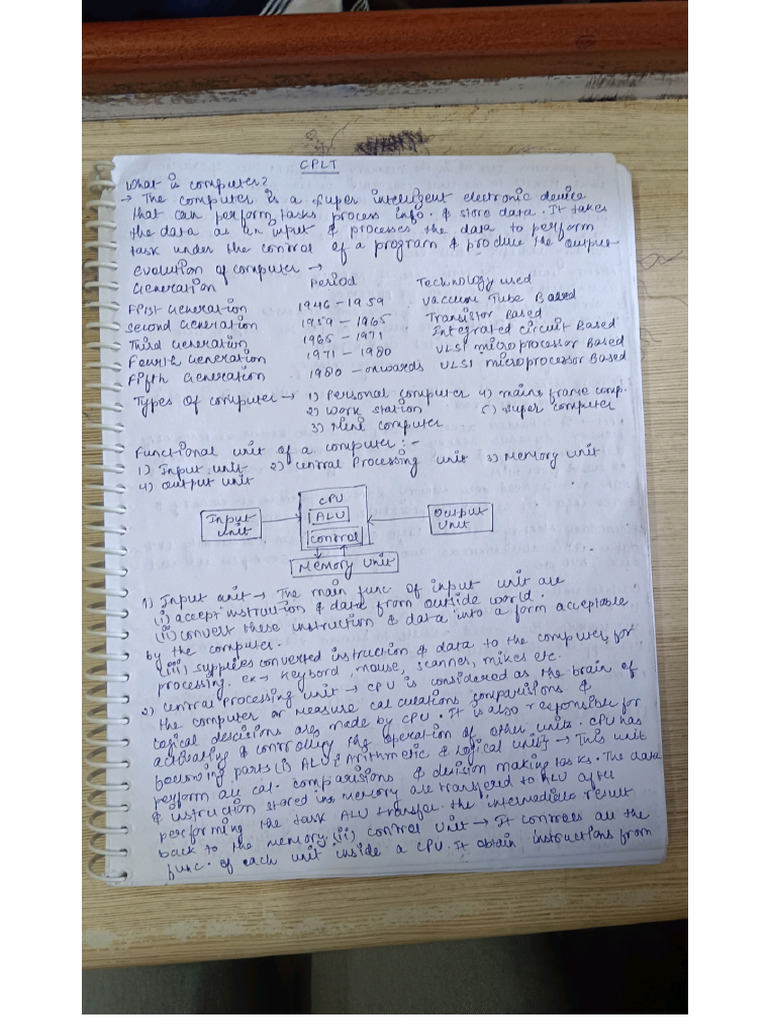 CPLT
What is computer?
→ The computer is a super intelligent electronic device
that can perform tasks process info. & store data. It takes
the data as an input & processes the data to perform
task under the control of a program & produce the output
Evolution of computer →
Generation Period Technology used
First Generation 1946 - 1959 Vaccum Tube Based
Second Generation 1959 - 1965 Transistor Based
Third Generation 1965 - 1971 Integrated Circuit Based
Fourth Generation 1971 - 1980 VLSI microprocessor Based
Fifth Generation 1980 - onwards ULSI microprocessor Based
Types of computer → 1) Personal computer 4) main frame comp.
2) Work station 5) Super computer
3) Mini computer
Functional unit of a computer :-
1) Input unit 2) Central Processing unit 3) Memory unit
4) Output unit
CPU
Input unit ALU Output unit
Control
Memory Unit
1) Input unit → The main func of input unit are
(i) accept instruction & data from outside world.
(ii) convert these instruction & data into a form acceptable
by the computer.
(iii) supplies converted instruction & data to the computer for
processing. ex → keybord, mouse, scanner, mikes etc.
2) Central Processing unit → CPU is considered as the brain of
the computer measure calculations comparisions &
logical descisions are made by CPU. It is also responsible for
activating & controlling the operation of other units. CPU has
following parts (i) ALU Arithmetic & Logical unit → This unit
perform all cal. comparisions & decision making tasks. The data
& instruction stored in memory are transfered to ALU after
performing the task ALU transfer the intermediate result
back to the memory. (ii) Control unit → It controls all the
func. of each unit inside a CPU. It obtain instructions from